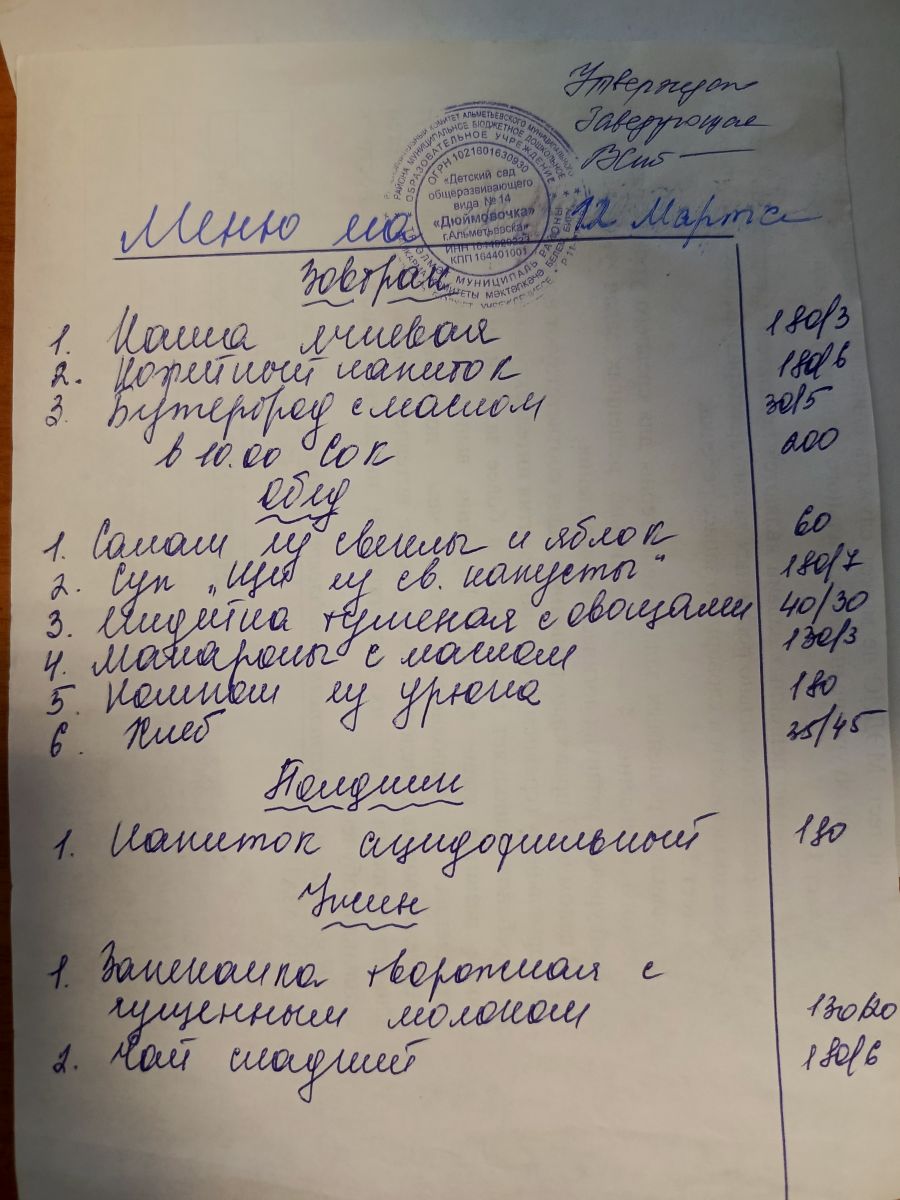 Утверждаю
Заведующая
ИСПОЛНИТЕЛЬНЫЙ КОМИТЕТ АЛЬМЕТЬЕВСКОГО МУНИЦИПАЛЬНОГО
РАЙОНА МУНИЦИПАЛЬНОЕ БЮДЖЕТНОЕ ДОШКОЛЬНОЕ
ОБРАЗОВАТЕЛЬНОЕ УЧРЕЖДЕНИЕ
ОГРН 1021601630930
«Детский сад
общеразвивающего
вида № 14
«Дюймовочка»
г.Альметьевска»
КПП 164401001
Меню на 12 Марта
Завтрак
1. Каша ячневая 180/3
2. Кофейный напиток 180/6
3. Бутерброд с маслом 30/5
в 10.00 Сок 200
Обед
1. Салат из свеклы и яблок 60
2. Суп „Щи из св. капусты" 180/7
3. тушеная с овощами 40/30
4. Макароны с маслом 130/3
5. Компот из урюка 180
6. Хлеб 35/45
Полдник
1. Напиток ацидофильный 180
Ужин
1. Запеканка творожная с
сгущенным молоком 130/20
2. Чай сладкий 180/6